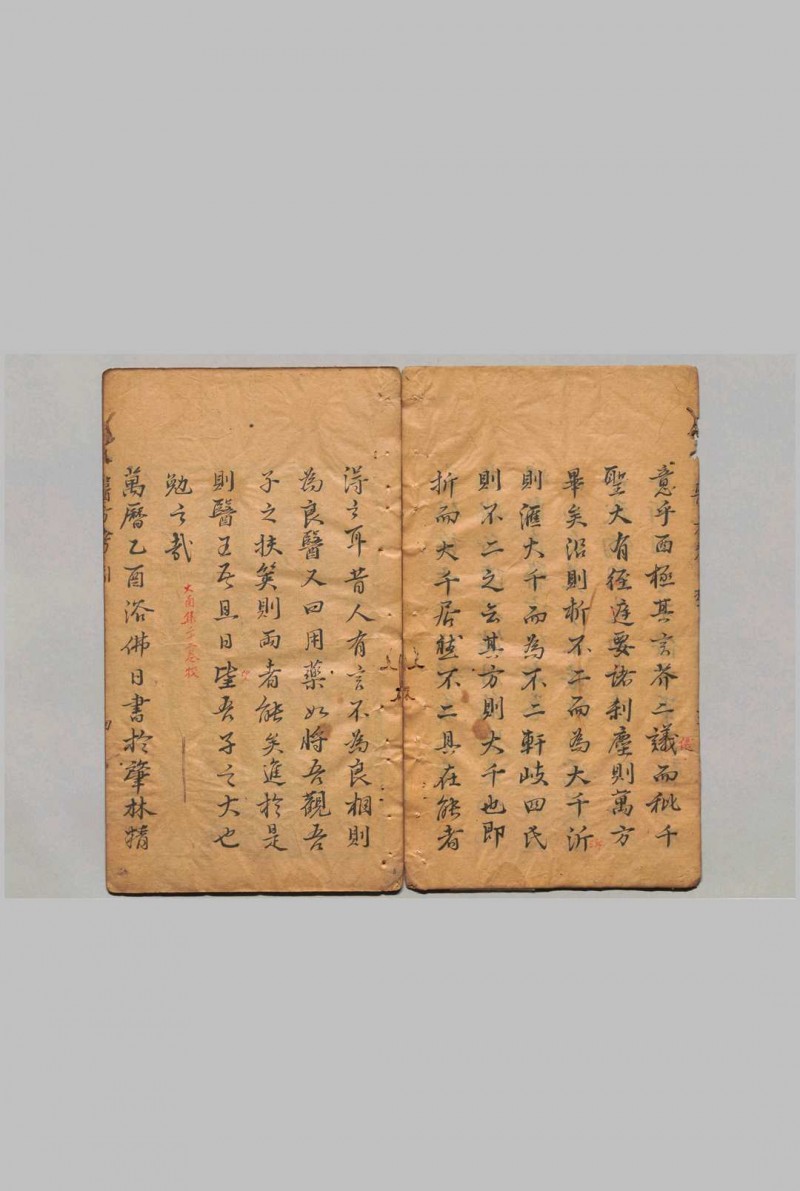 意乎西極其言芥二議而秕千
聖大有徑庭要諸剎塵則萬方
畢矣沿則析不二而為大千沂
則滙大千而為不二軒岐四民
則不二之云其方則大千也即
折而大千居然不二具在能者
得之耳昔人有言不為良相則
為良醫又曰用藥如將吾觀吾
子之扶筴則両者能矣進於是
則醫王吾且日望吾子之大也
勉之哉
萬曆乙酉浴佛日書於肇林精